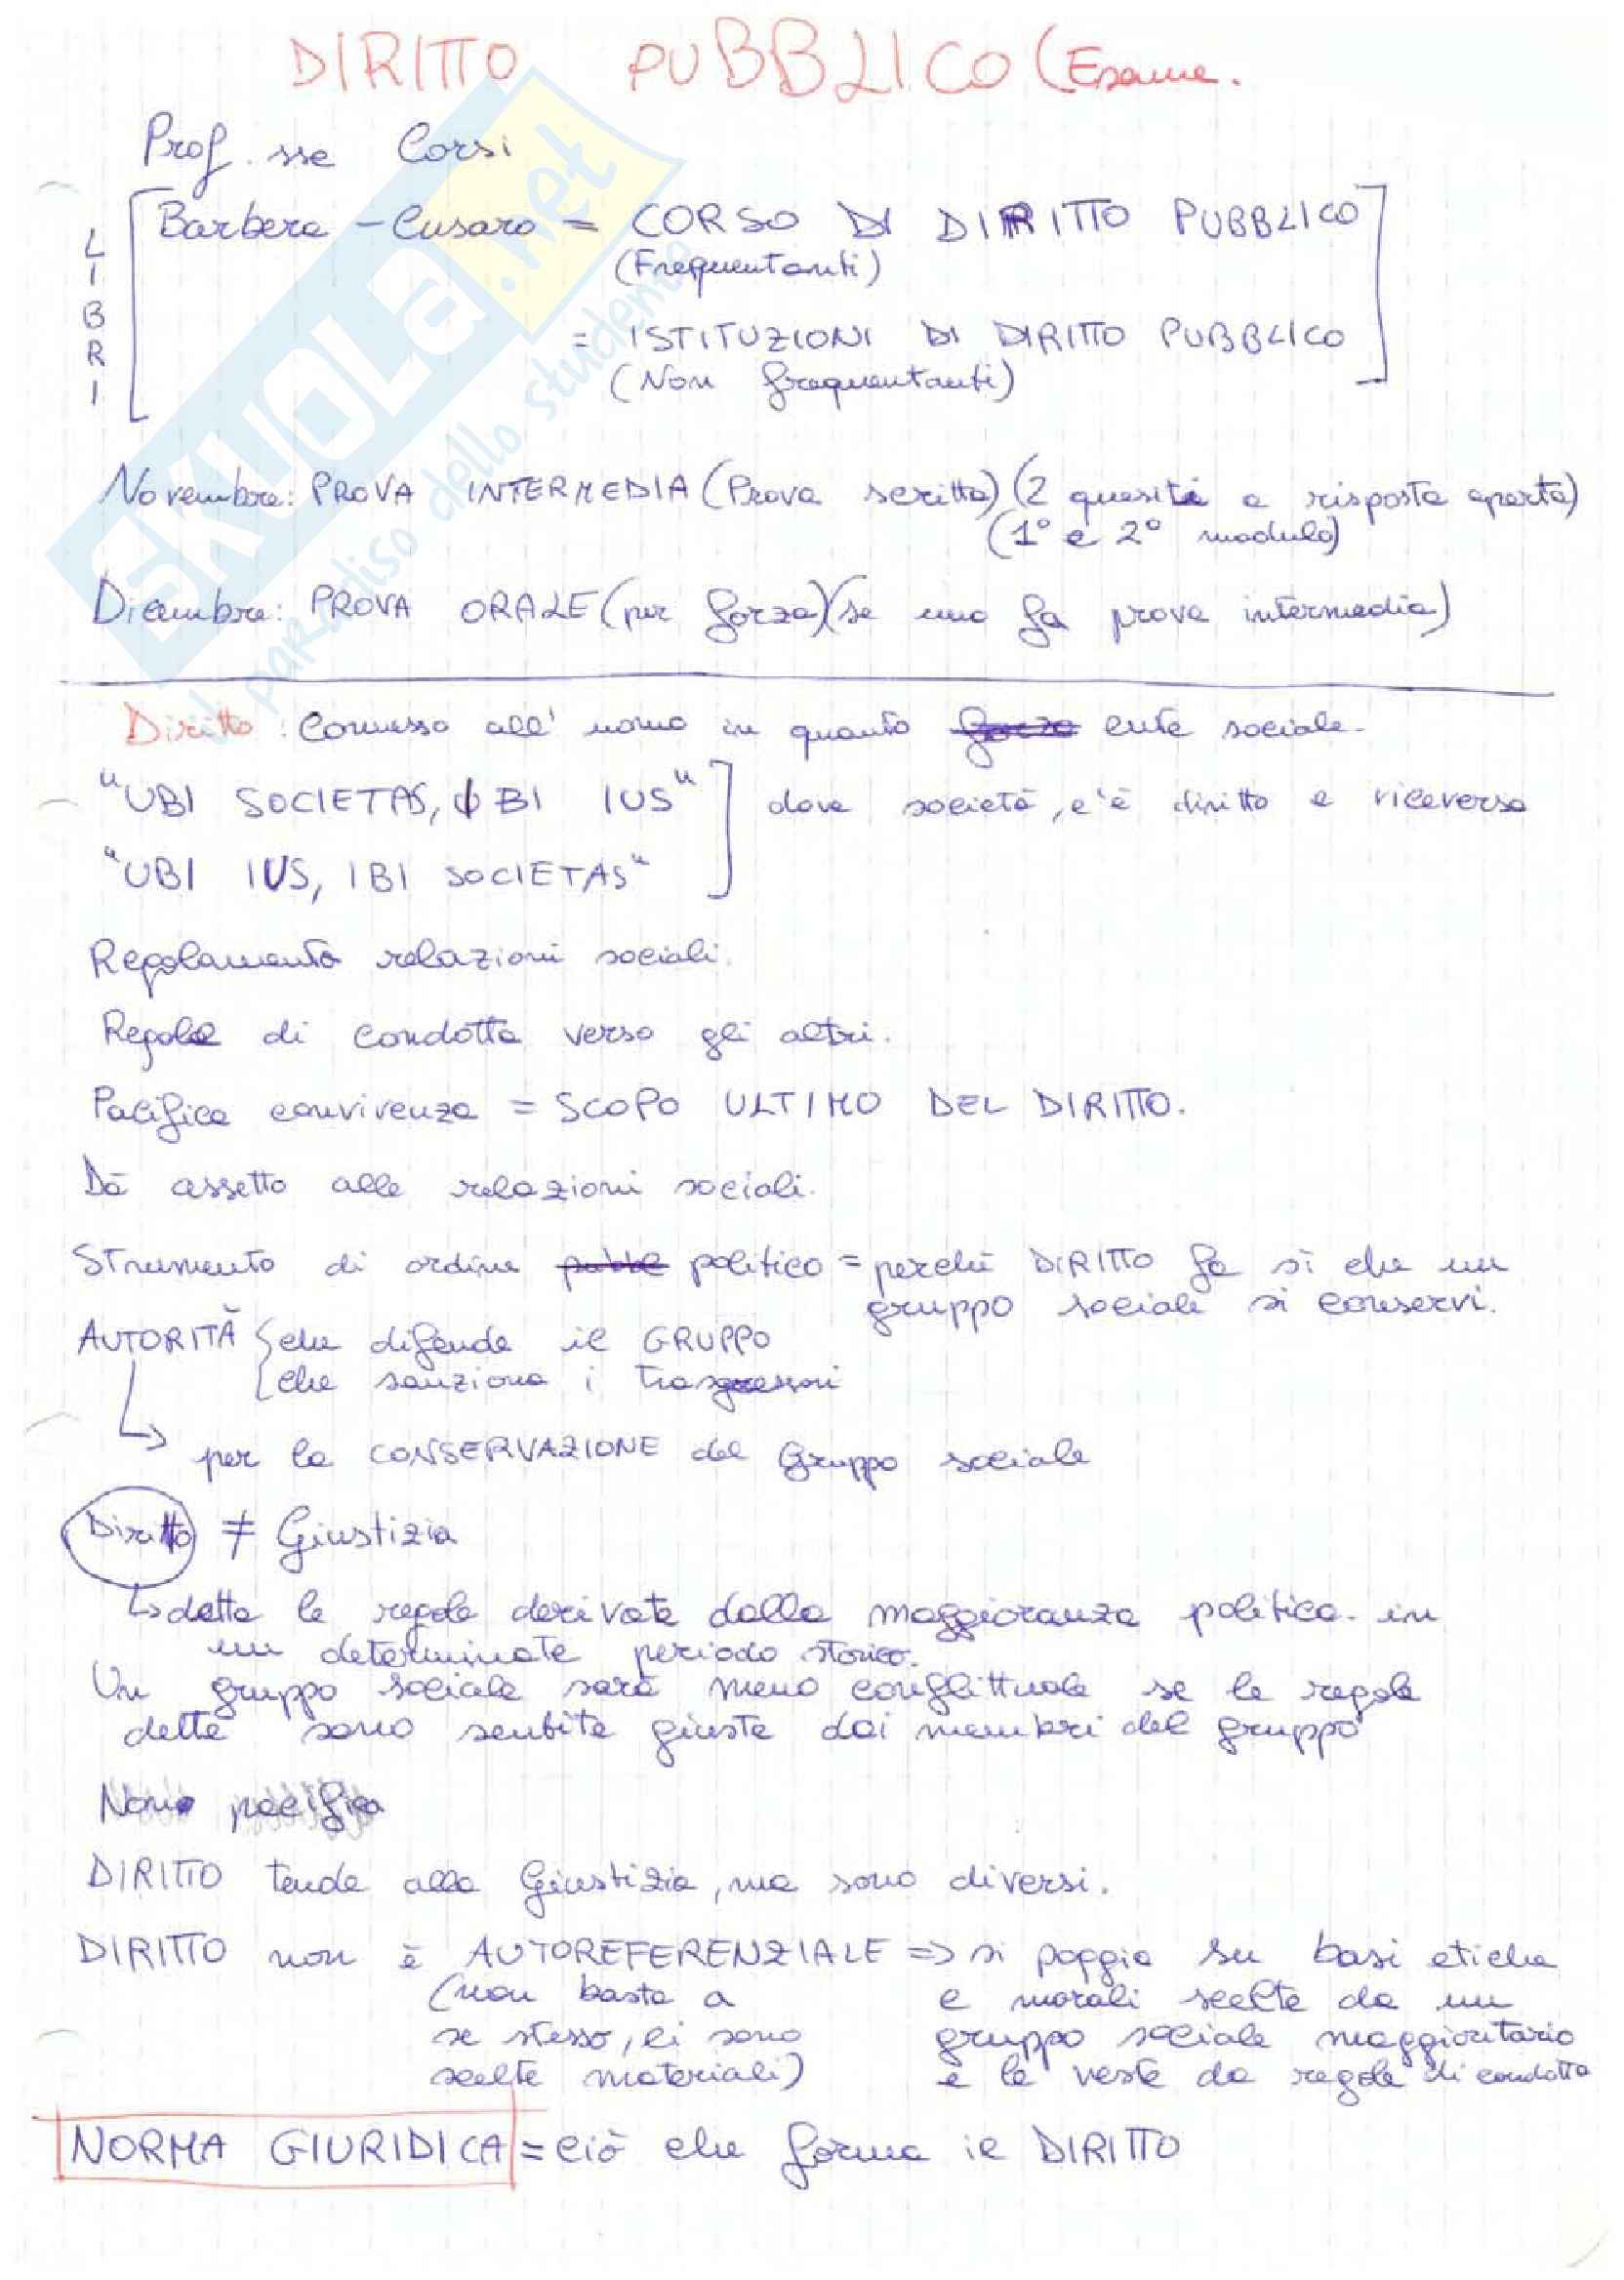 DIRITTO PUBBLICO (Esame.
Prof.sse Corsi
LIBRI
Barbera - Cusaro = CORSO DI DIRITTO PUBBLICO
(Frequentanti)
= ISTITUZIONI DI DIRITTO PUBBLICO
(Non frequentanti)
Novembre: PROVA INTERMEDIA (Prova scritta) (2 quesiti a risposta aperta)
(1° e 2° modulo)
Dicembre: PROVA ORALE (per forza) (se uno fa prova intermedia)
Diritto: Connesso all' uomo in quanto forza ente sociale.
"UBI SOCIETAS, IBI IUS"
dove società, c'è diritto e viceversa
"UBI IUS, IBI SOCIETAS"
Regolamento relazioni sociali.
Regole di condotta verso gli altri.
Pacifica convivenza = SCOPO ULTIMO DEL DIRITTO.
Dà assetto alle relazioni sociali.
Strumento di ordine politico = perchè DIRITTO fa sì che un
gruppo sociale si conservi.
AUTORITÀ { che difende il GRUPPO
che sanziona i trasgressori
per la CONSERVAZIONE del Gruppo sociale
Diritto ≠ Giustizia
↳ detta le regole derivate dalla maggioranza politica in
un determinate periodo storico.
Un gruppo sociale sarà meno conflittuale se le regole
dette sono sentite giuste dai membri del gruppo
pacifica
DIRITTO tende alla Giustizia, ma sono diversi.
DIRITTO non è AUTOREFERENZIALE => si poggia su basi etiche
(non basta a e morali scelte da un
se stesso, ci sono gruppo sociale maggioritario
scelte materiali) e le veste da regole di condotta
NORMA GIURIDICA = ciò che forma il DIRITTO
SKUOLA.net
il paradiso dello studente